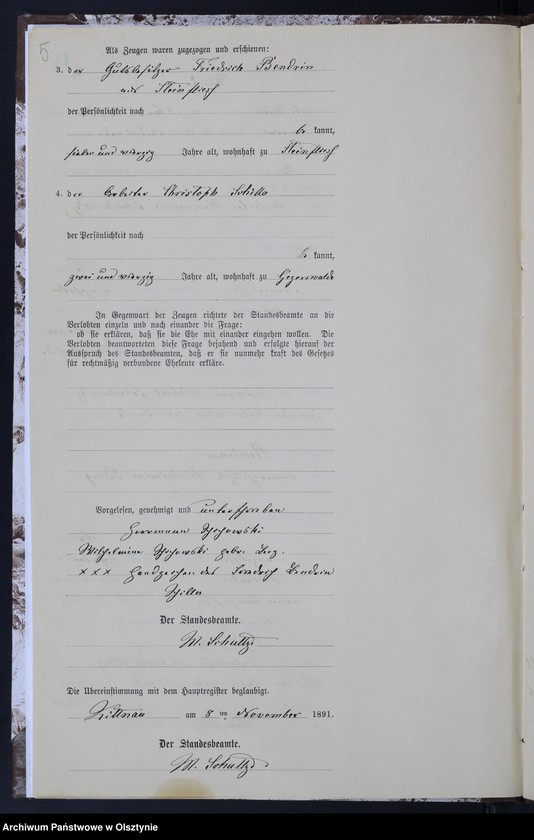 5
Als Zeugen waren zugezogen und erschienen:
3. der Gutsbesitzer Friedrich Bendrin
aus Steinfliess
der Persönlichkeit nach
be kannt,
sieben und vierzig Jahre alt, wohnhaft zu Steinfliess
4. der Arbeiter Christoph
der Persönlichkeit nach
be kannt,
zwei und vierzig Jahre alt, wohnhaft zu
In Gegenwart der Zeugen richtete der Standesbeamte an die
Verlobten einzeln und nach einander die Frage:
ob sie erklären, daß sie die Ehe mit einander eingehen wollen. Die
Verlobten beantworteten diese Frage bejahend und erfolgte hierauf der
Ausspruch des Standesbeamten, daß er sie nunmehr kraft des Gesetzes
für rechtmäßig verbundene Eheleute erkläre.
Vorgelesen, genehmigt und unterschrieben
Herrmann
Wilhelmine gebr.
××× Handzeichen des Friedrich Bendrin
Der Standesbeamte.
M. Schultze
Die Übereinstimmung mit dem Hauptregister beglaubigt.
am 8 ten November 1891.
Der Standesbeamte.
M. Schultze
Archiwum Państwowe w Olsztynie